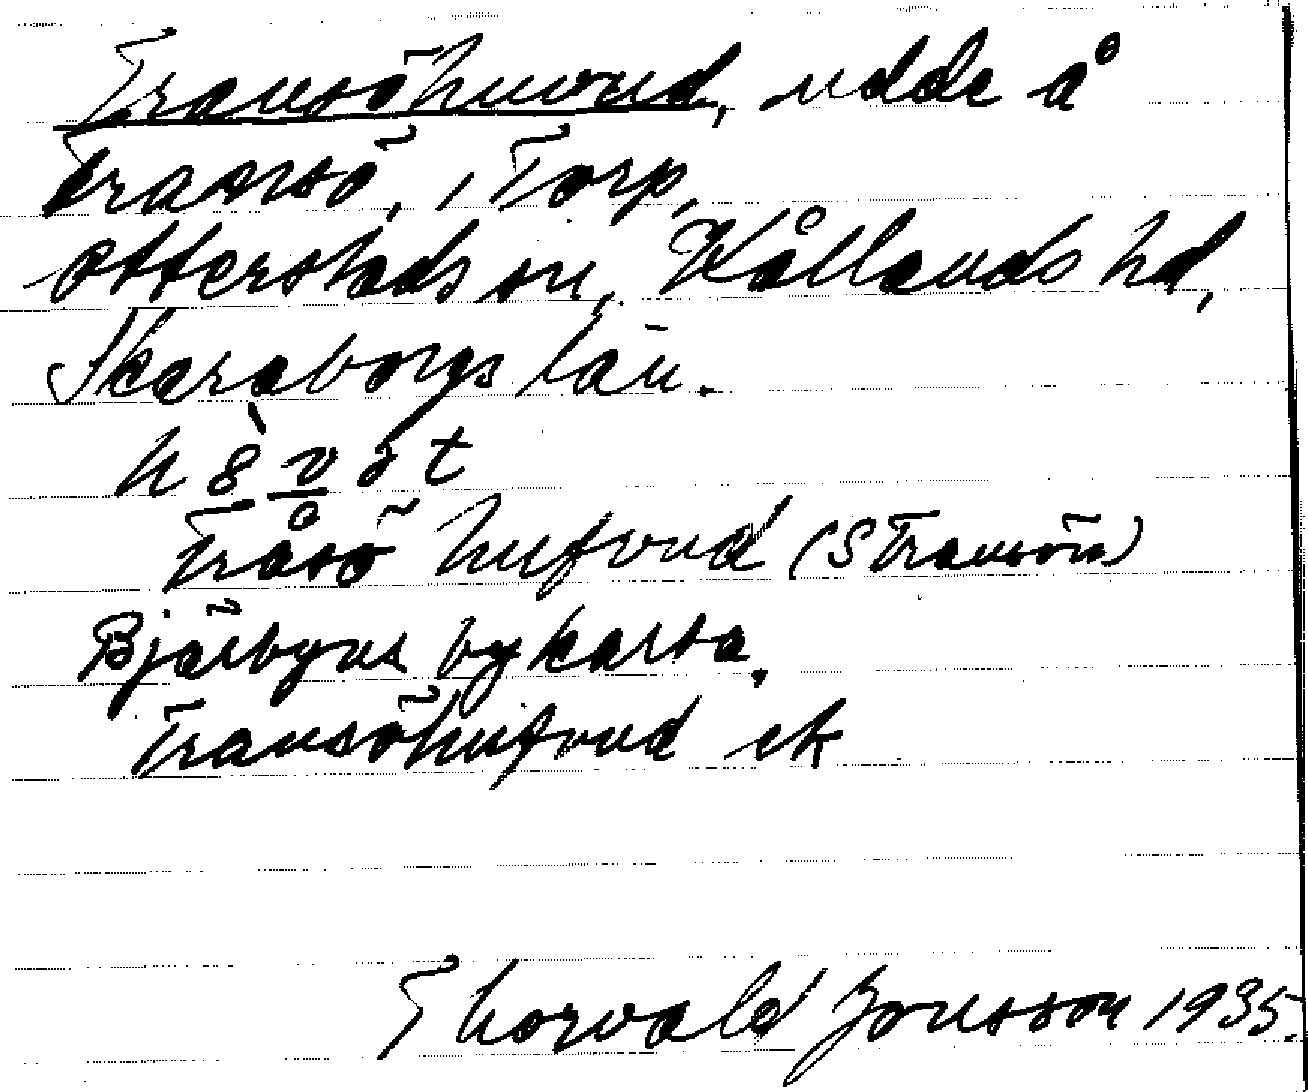 Transöhuvud, udde å
Transö, i Torp,
Otterstads sn, Kållands hd,
Skaraborgs län.
Tråsö hufvud (S Transön)
Bjärbyns bykarta.
Transöhufvud ek
Thorvald Jonsson 1935.